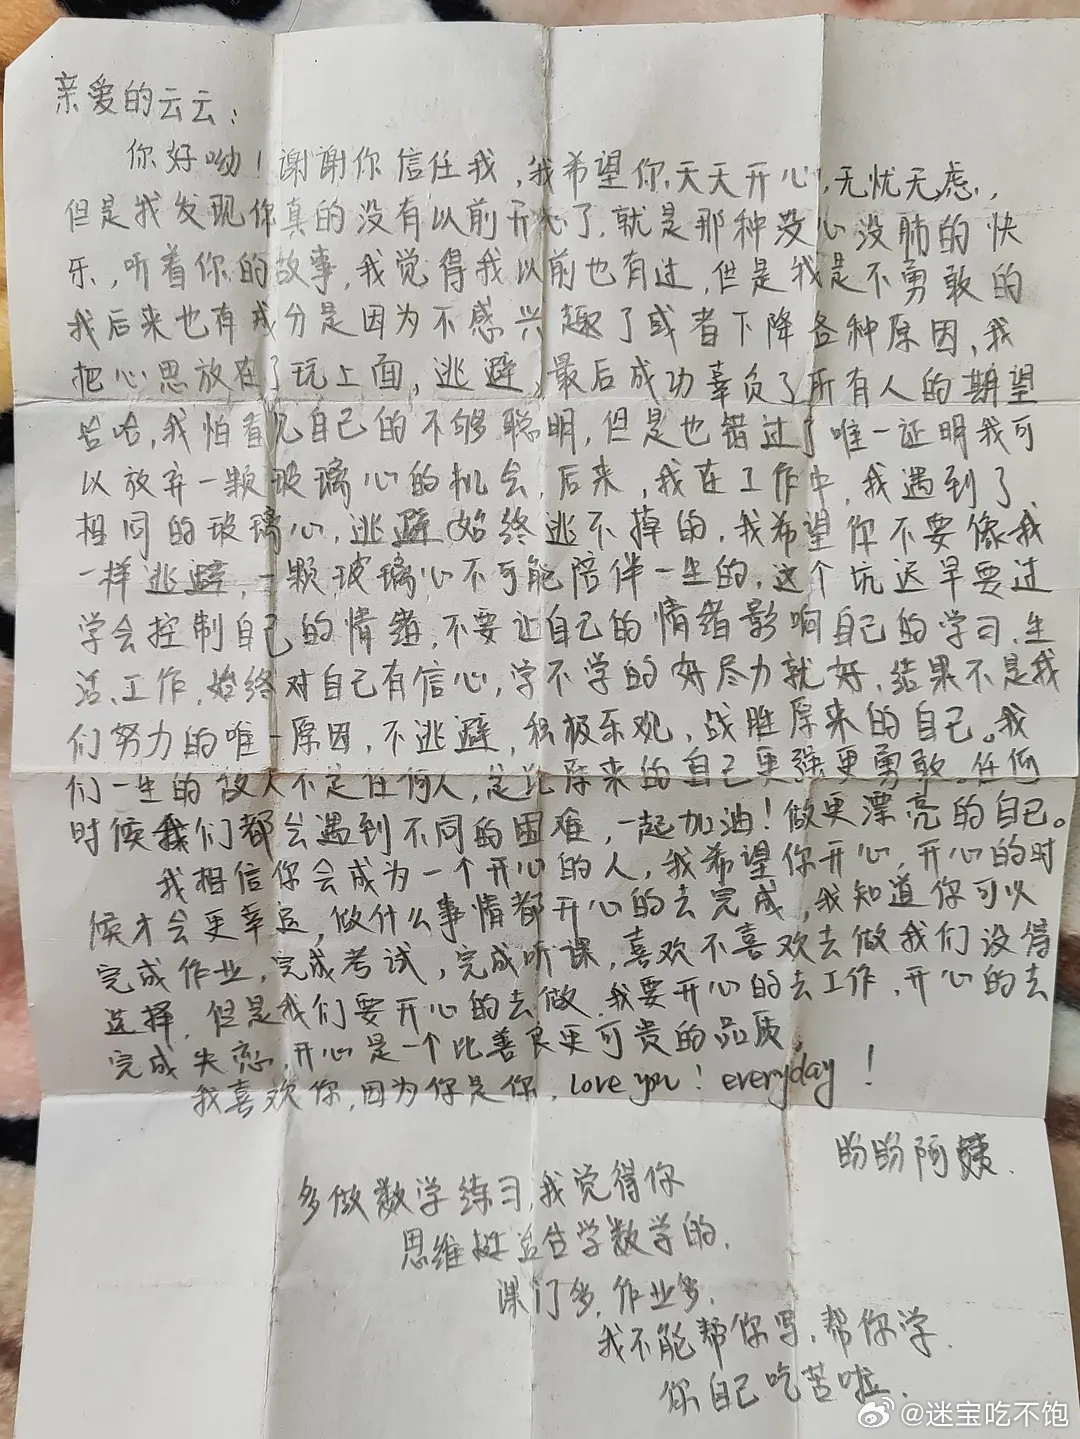 亲爱的云云：
你好呦！谢谢你信任我，我希望你天天开心，无忧无虑，
但是我发现你真的没有以前开心了，就是那种没心没肺的快
乐，听着你的故事，我觉得我以前也有过，但是我是不勇敢的
我后来也有成分是因为不感兴趣了或者下降各种原因，我
把心思放在了玩上面，逃避，最后成功辜负了所有人的期望
哈哈，我怕看见自己的不够聪明，但是也错过了唯一证明我可
以放弃一颗玻璃心的机会，后来，我在工作中，我遇到了，
相同的玻璃心，逃避始终逃不掉的，我希望你不要像我
一样逃避，一颗玻璃心不可能陪伴一生的，这个坑迟早要过
学会控制自己的情绪，不要让自己的情绪影响自己的学习、生
活、工作，始终对自己有信心，学不学的好尽力就好，结果不是我
们努力的唯一原因，不逃避，积极乐观，战胜原来的自己。我
们一生的敌人不是任何人，是比原来的自己更强更勇敢。任何
时候我们都会遇到不同的困难，一起加油！做更漂亮的自己。
我相信你会成为一个开心的人，我希望你开心，开心的时
候才会更幸运，做什么事情都开心的去完成，我知道你可以
完成作业，完成考试，完成听课，喜欢不喜欢去做我们没得
选择，但是我们要开心的去做，我要开心的去工作，开心的去
完成失恋，开心是一个比善良更可贵的品质，
我喜欢你，因为你是你，love you！everyday！
盼盼阿姨
多做数学练习，我觉得你
思维挺适合学数学的，
课门多，作业多，
我不能帮你写，帮你学，
你自己吃苦啦，
@迷宝吃不饱